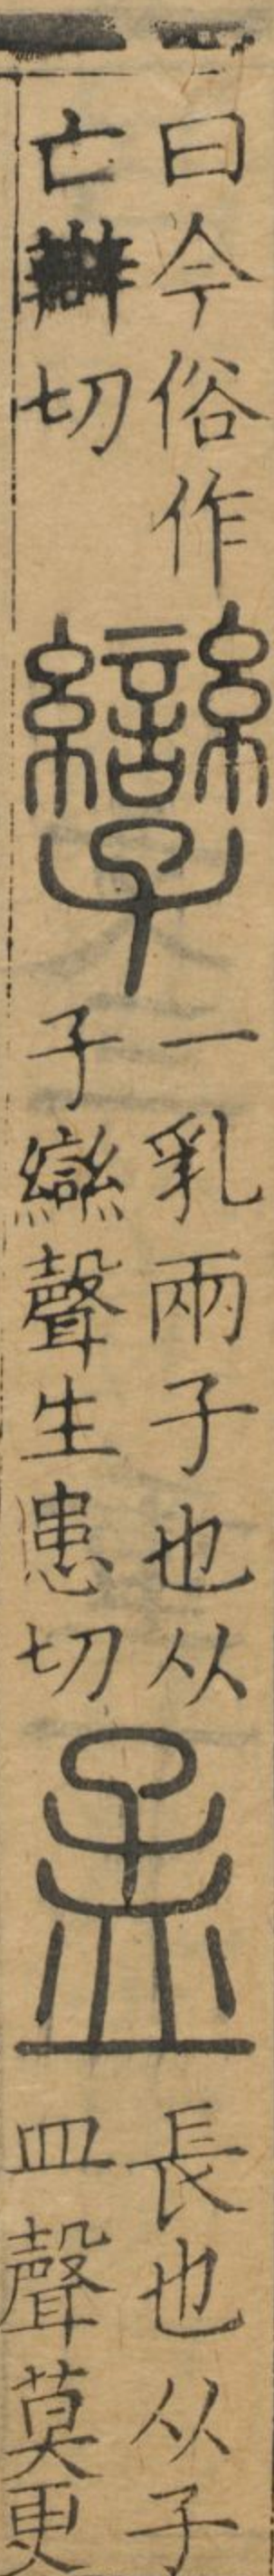 曰今俗作
亡辯切
孿
一乳兩子也从
子䜌聲生患切
孟
長也从子
皿聲莫更